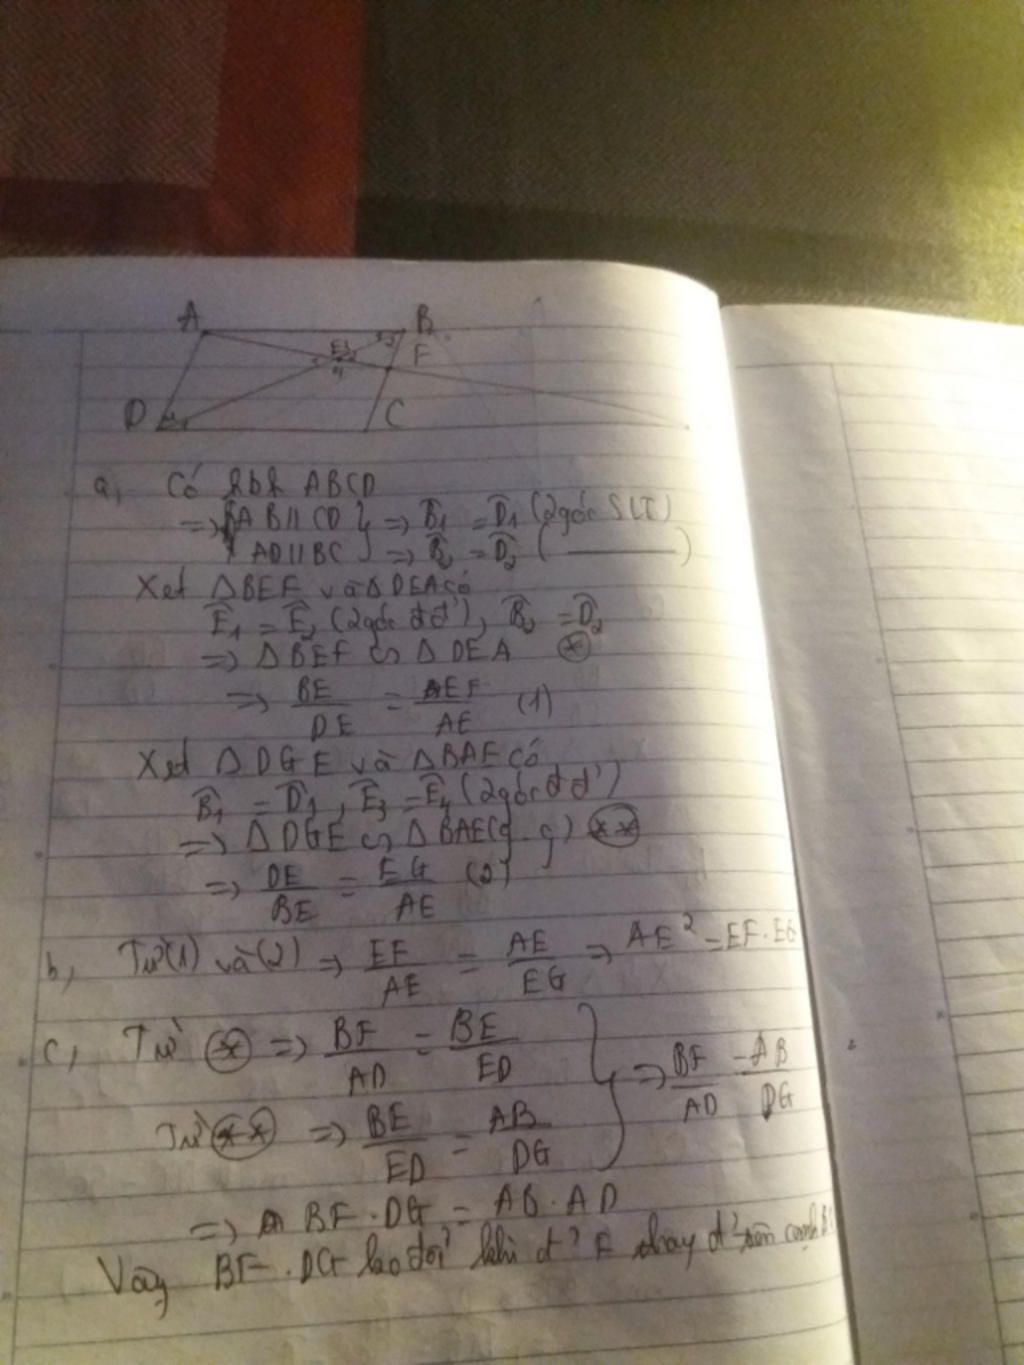 A B
E3
F
D C
a, Có hbh ABCD
=> { AB // CD } => B̂1 = D̂1 (2 góc SLT)
AD // BC => B̂2 = D̂2 ( ——— )
Xét ΔBEF và ΔDEA có
Ê1 = Ê2 (2 góc đđ'), B̂2 = D̂2
=> ΔBEF ∽ ΔDEA (*)
=> BE/DE = EF/AE (1)
Xét ΔDGE và ΔBAE có
B̂1 = D̂1, Ê3 = Ê4 (2 góc đđ')
=> ΔDGE ∽ ΔBAE (g.g) (**)
=> DE/BE = EG/AE (2)
b, Từ (1) và (2) => EF/AE = AE/EG => AE² = EF.EG
c, Từ (*) => BF/AD = BE/ED
=> BF/AD = AB/DG
Từ (**) => BE/ED = AB/DG
=> BF.DG = AB.AD
Vậy BF.DG ko đổi khi đ' F thay đ' trên cạnh